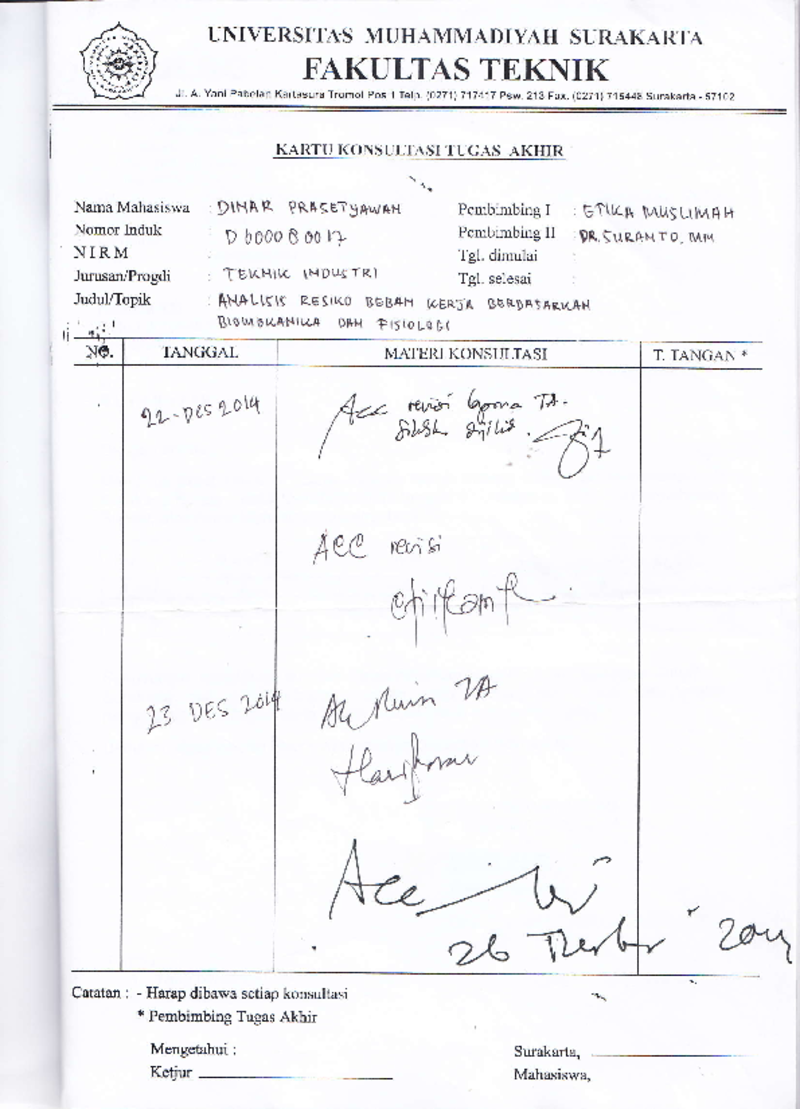 UNIVERSITAS MUHAMMADIYAH SURAKARTA
FAKULTAS TEKNIK
Jl. A. Yani Pabelan Kartasura Tromol Pos 1 Telp. (0271) 717417 Psw. 213 Fax. (0271) 715448 Surakarta - 57102
KARTU KONSULTASI TUGAS AKHIR
Nama Mahasiswa : DIMAR PRASETYAWAN Pembimbing I : ETIKA MUSLIMAH
Nomor Induk : D 600080017 Pembimbing II : DR. SURANTO, MM
NIRM Tgl. dimulai :
Jurusan/Progdi : TEKNIK INDUSTRI Tgl. selesai :
Judul/Topik : ANALISIS RESIKO BEBAN KERJA BERDASARKAN
BIOMEKANIKA DAN FISIOLOGI
NO. TANGGAL MATERI KONSULTASI T. TANGAN *
22 - DES 2014 Acc revisi TA.
ACC revisi
23 DES 2014 TA
Acc
26 2014
Catatan : - Harap dibawa setiap konsultasi
* Pembimbing Tugas Akhir
Mengetahui :
Ketjur
Surakarta,
Mahasiswa,